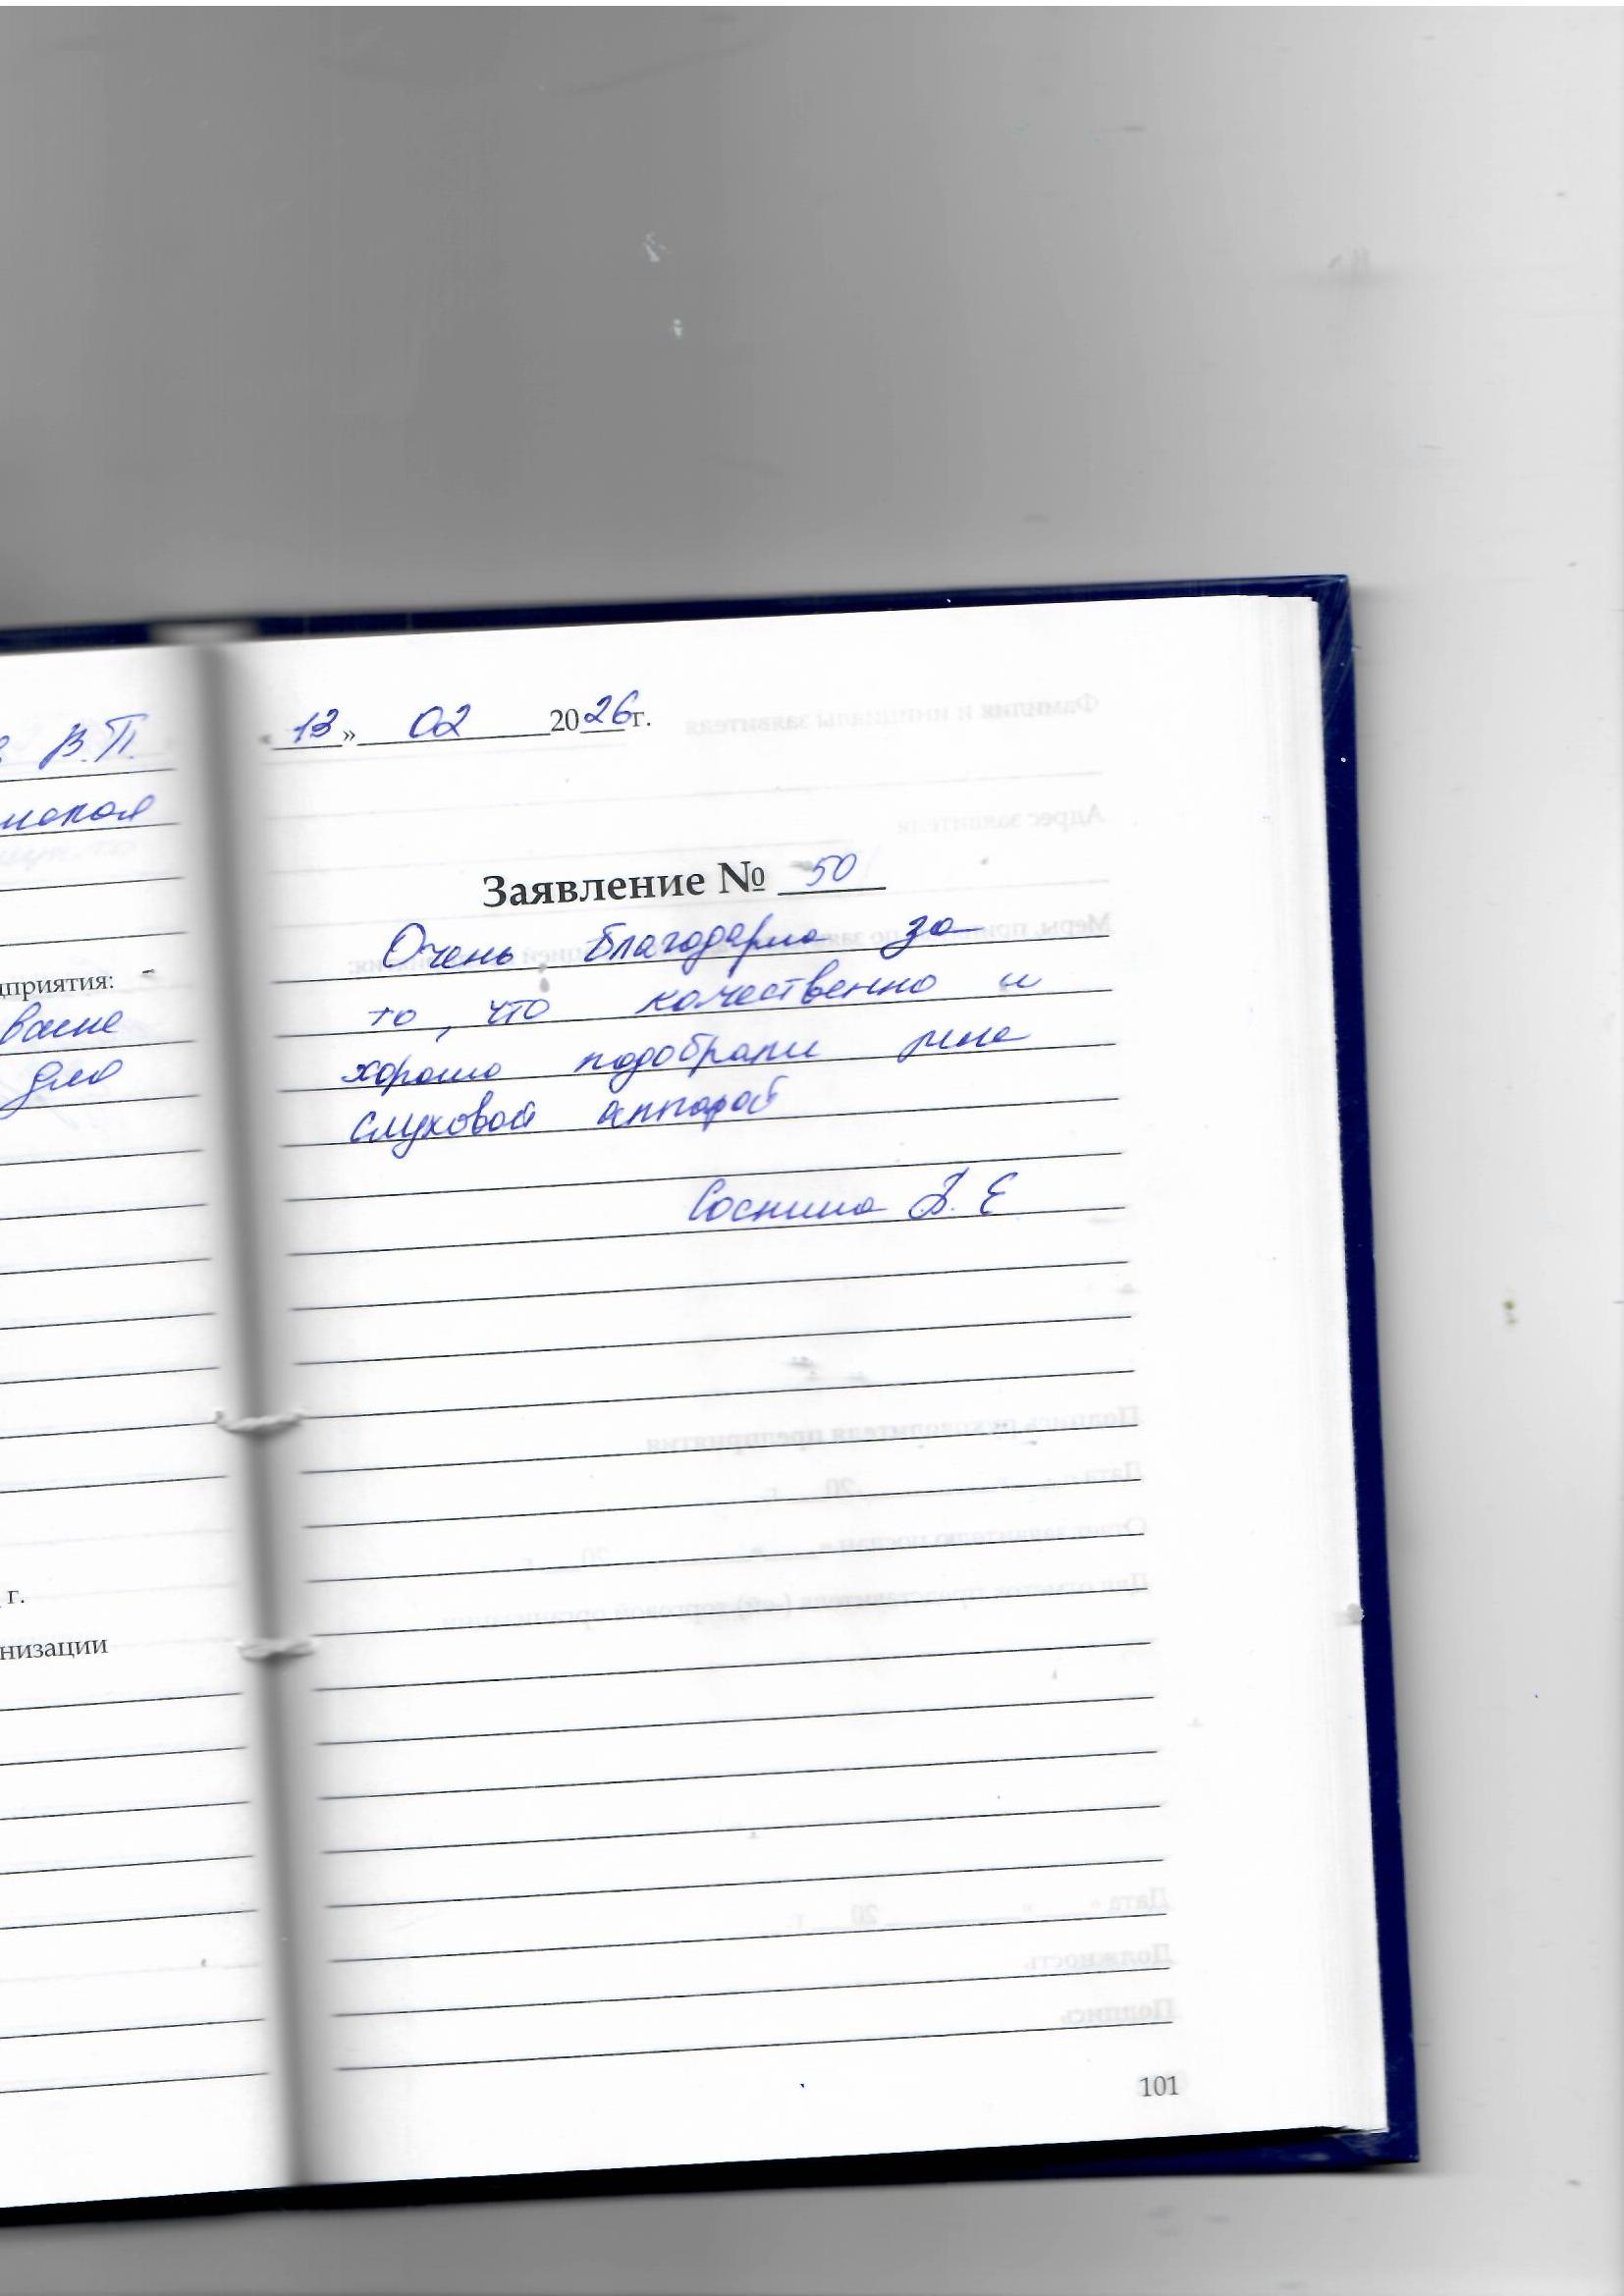 В.П.
дприятия:
для
г.
низации
«13» 02 2026г.
Заявление № 50
Очень благодарна за
то, что качественно и
хорошо подобрали мне
слуховой аппарат
Соснина Е
101